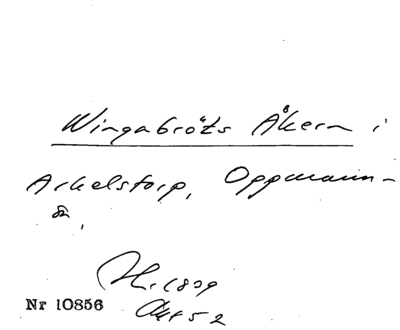 Wingabröts Åkern i
Arkelstorp, Oppmann-
a,
H. 1839
Akt 52
Nr 10856